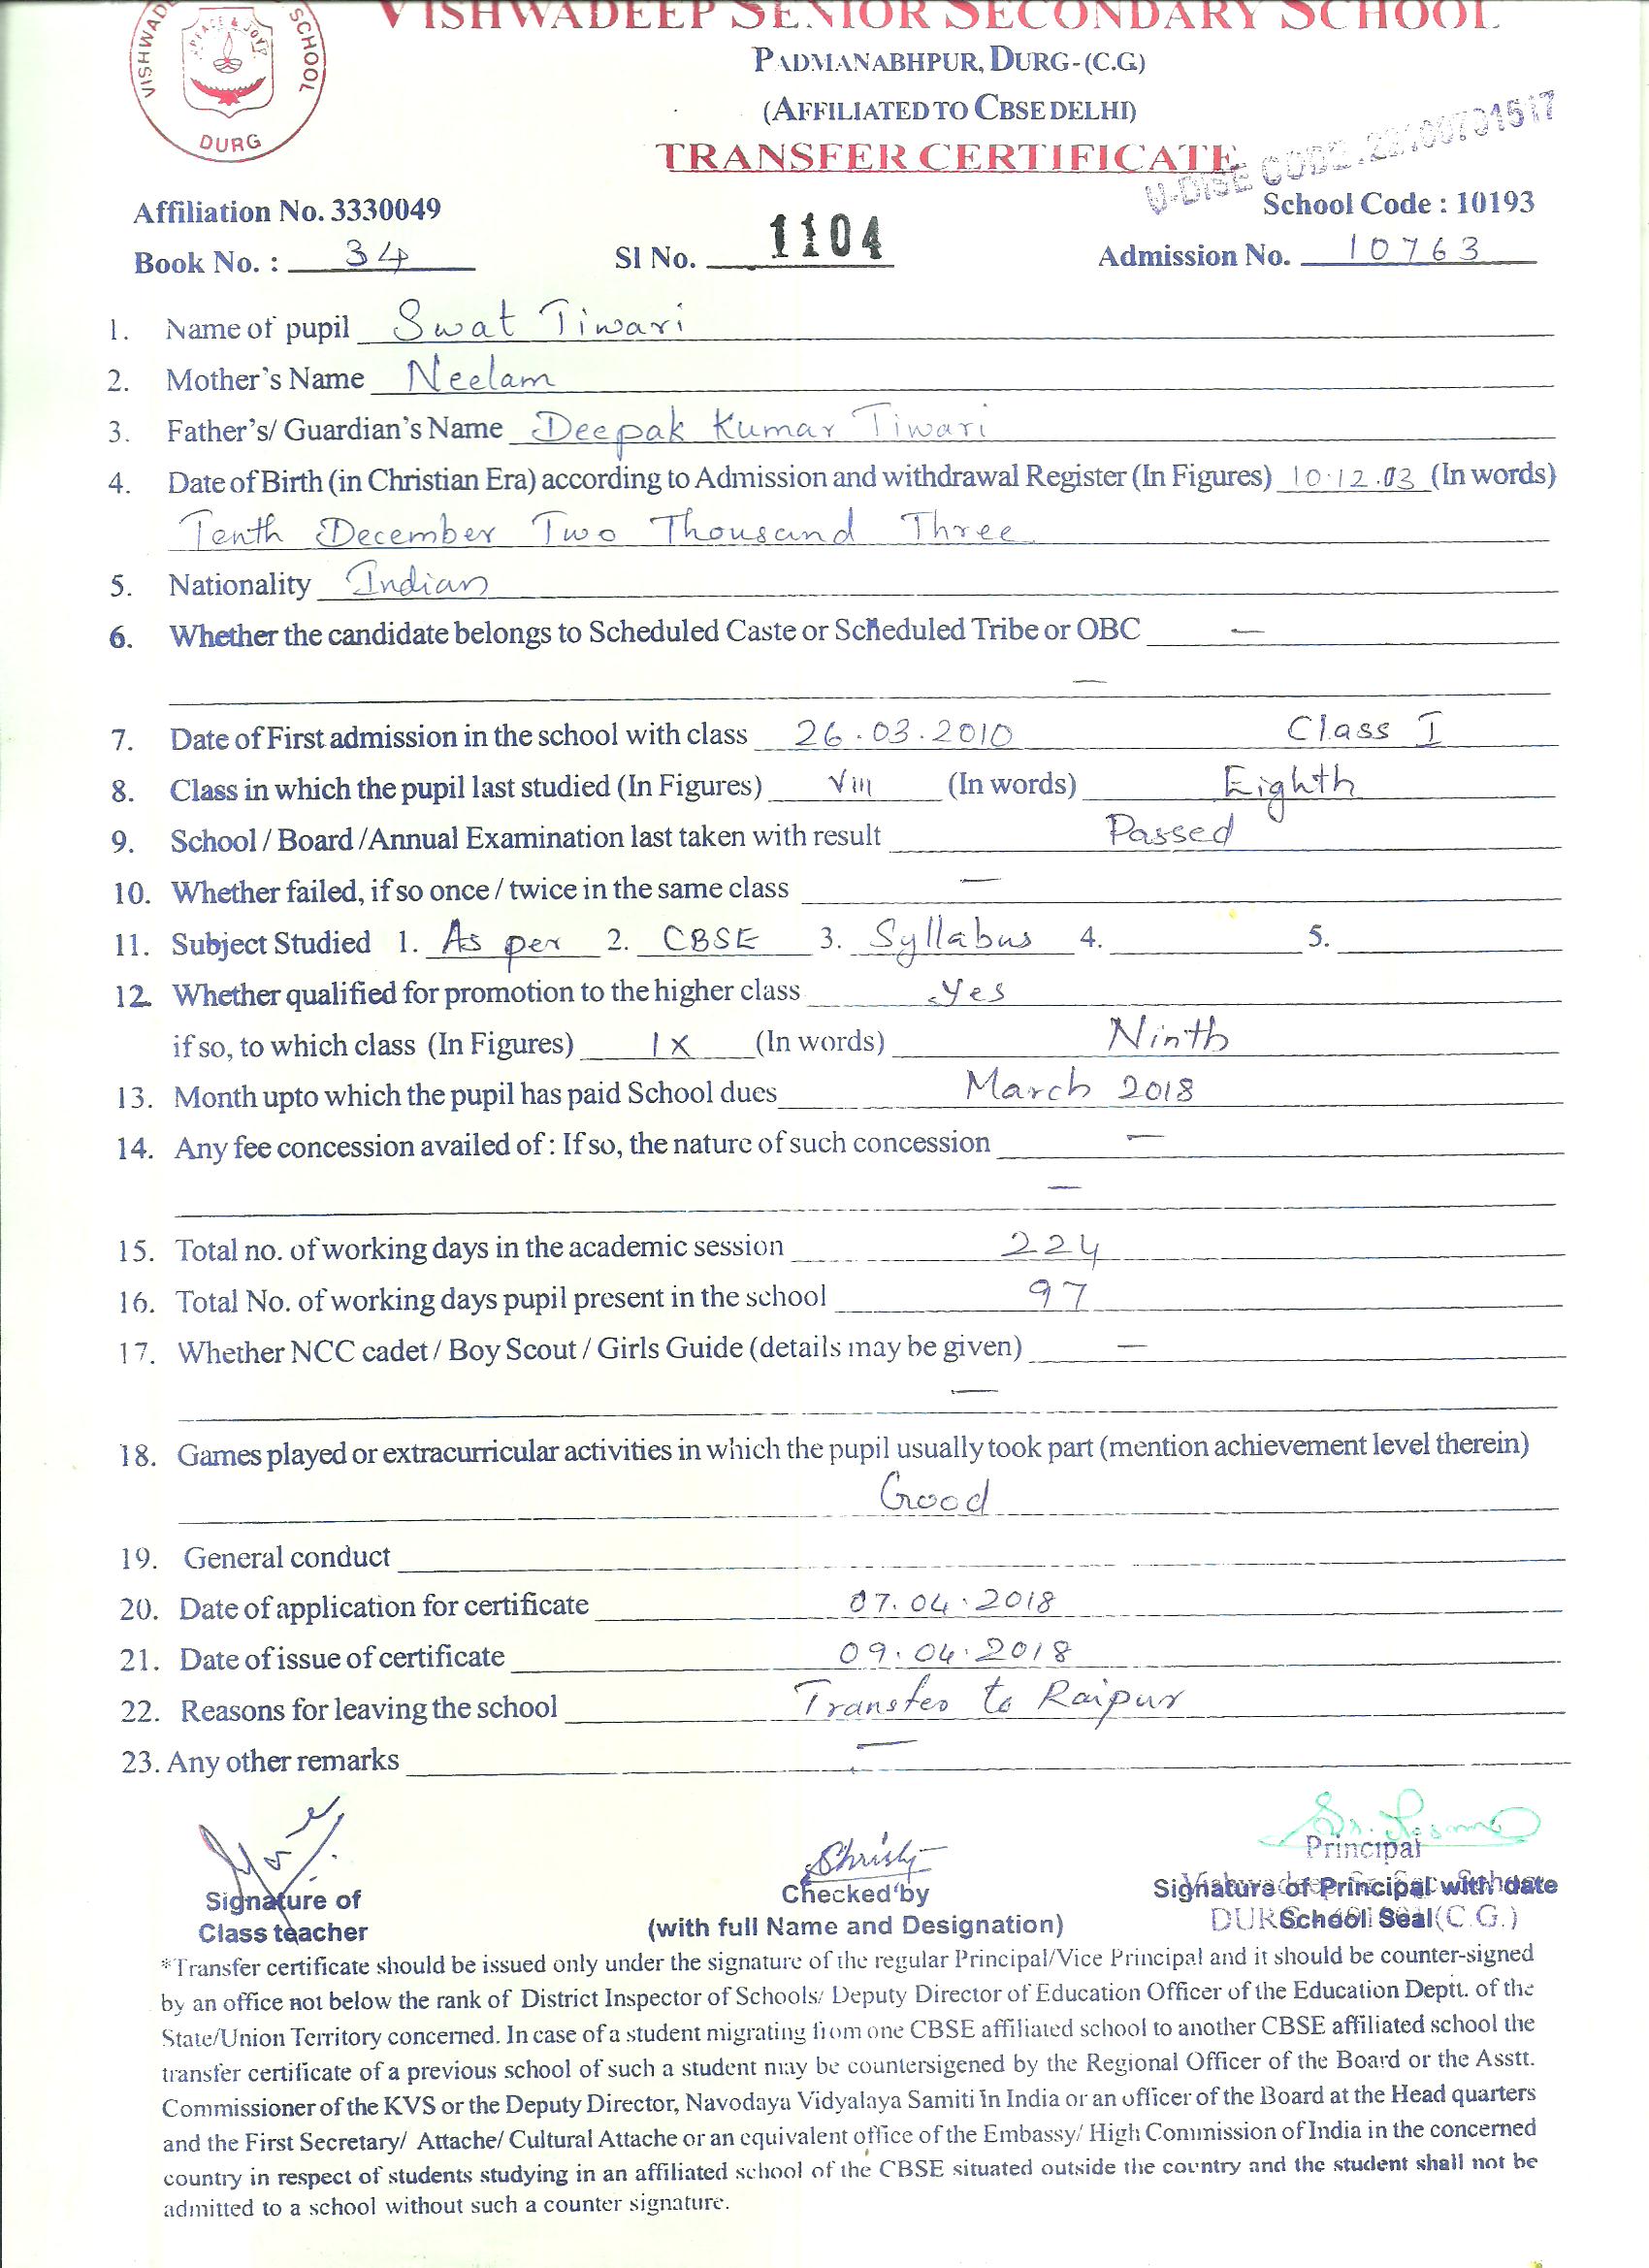 VISHWADEEP SENIOR SECONDARY SCHOOL
VISHWADE SCHOOL
PEACE & JOY
DURG
PADMANABHPUR, DURG-(C.G.)
(AFFILIATED TO CBSE DELHI)
TRANSFER CERTIFICATE
U-DISE CODE.
Affiliation No. 3330049 School Code : 10193
Book No. : 34 Sl No. 1104 Admission No. 10763
1. Name of pupil Swat Tiwari
2. Mother's Name Neelam
3. Father's/ Guardian's Name Deepak Kumar Tiwari
4. Date of Birth (in Christian Era) according to Admission and withdrawal Register (In Figures) 10.12.03 (In words)
Tenth December Two Thousand Three
5. Nationality Indian
6. Whether the candidate belongs to Scheduled Caste or Scheduled Tribe or OBC —
—
7. Date of First admission in the school with class 26.03.2010 Class I
8. Class in which the pupil last studied (In Figures) VIII (In words) Eighth
9. School / Board /Annual Examination last taken with result Passed
10. Whether failed, if so once / twice in the same class —
11. Subject Studied 1. As per 2. CBSE 3. Syllabus 4. 5.
12. Whether qualified for promotion to the higher class Yes
if so, to which class (In Figures) IX (In words) Ninth
13. Month upto which the pupil has paid School dues March 2018
14. Any fee concession availed of : If so, the nature of such concession —
—
15. Total no. of working days in the academic session 224
16. Total No. of working days pupil present in the school 97
17. Whether NCC cadet / Boy Scout / Girls Guide (details may be given) —
—
18. Games played or extracurricular activities in which the pupil usually took part (mention achievement level therein)
Good
19. General conduct
20. Date of application for certificate 07.04.2018
21. Date of issue of certificate 09.04.2018
22. Reasons for leaving the school Transfer to Raipur
23. Any other remarks —
Christy
Principal
Signature of Checked by Signature of Principal with date
Class teacher (with full Name and Designation) DURG School Seal (C.G.)
*Transfer certificate should be issued only under the signature of the regular Principal/Vice Principal and it should be counter-signed
by an office not below the rank of District Inspector of Schools/ Deputy Director of Education Officer of the Education Deptt. of the
State/Union Territory concerned. In case of a student migrating from one CBSE affiliated school to another CBSE affiliated school the
transfer certificate of a previous school of such a student may be countersigened by the Regional Officer of the Board or the Asstt.
Commissioner of the KVS or the Deputy Director, Navodaya Vidyalaya Samiti in India or an officer of the Board at the Head quarters
and the First Secretary/ Attache/ Cultural Attache or an equivalent office of the Embassy/ High Commission of India in the concerned
country in respect of students studying in an affiliated school of the CBSE situated outside the country and the student shall not be
admitted to a school without such a counter signature.